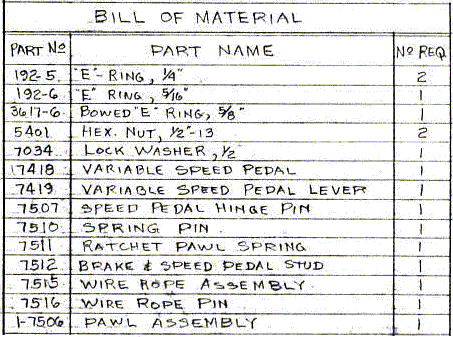 BILL OF MATERIAL
PART No PART NAME No REQ.
192-5 "E"-RING, 1/4" 2
192-6 "E" RING, 5/16" 1
3617-6 BOWED "E" RING, 5/8" 1
5401 HEX. NUT, 1/2"-13 2
7034 LOCK WASHER, 1/2 1
17418 VARIABLE SPEED PEDAL 1
7419 VARIABLE SPEED PEDAL LEVER 1
7507 SPEED PEDAL HINGE PIN 1
7510 SPRING PIN 1
7511 RATCHET PAWL SPRING 1
7512 BRAKE & SPEED PEDAL STUD 1
7515 WIRE ROPE ASSEMBLY 1
7516 WIRE ROPE PIN 1
1-7506 PAWL ASSEMBLY 1